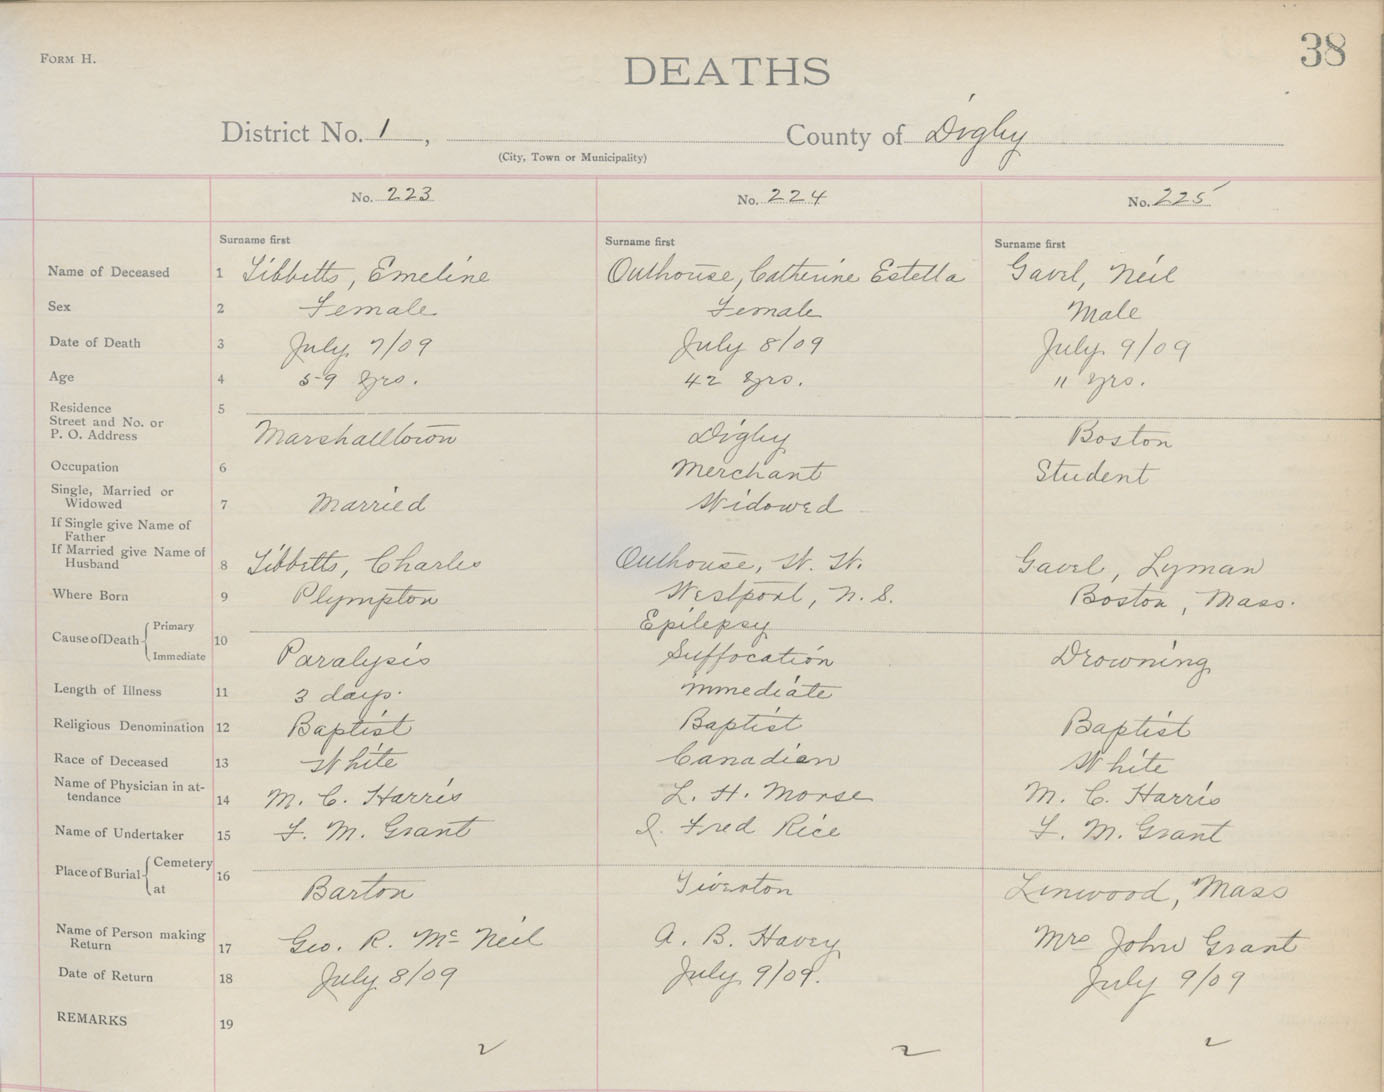 FORM H.
38
DEATHS
District No. 1, County of Digby
(City, Town or Municipality)
No. 223 No. 224 No. 225
Surname first Surname first Surname first
Name of Deceased 1 Tibbetts, Emeline Outhouse, Catherine Estella Gavel, Neil
Sex 2 Female Female Male
Date of Death 3 July 7/09 July 8/09 July 9/09
Age 4 59 yrs. 42 yrs. 11 yrs.
Residence 5
Street and No. or
P. O. Address Marshalltown Digby Boston
Occupation 6 Merchant Student
Single, Married or
Widowed 7 Married Widowed
If Single give Name of
Father
If Married give Name of
Husband 8 Tibbetts, Charles Outhouse, W. W. Gavel, Lyman
Where Born 9 Plympton Westport, N. S. Boston, Mass.
Cause of Death Primary 10 Epilepsy
Immediate Paralysis Suffocation Drowning
Length of Illness 11 3 days. immediate
Religious Denomination 12 Baptist Baptist Baptist
Race of Deceased 13 White Canadien White
Name of Physician in at-
tendance 14 M. C. Harris L. H. Morse M. C. Harris
Name of Undertaker 15 F. M. Grant J. Fred Rice F. M. Grant
Place of Burial Cemetery 16
at Barton Tiverton Linwood, Mass
Name of Person making
Return 17 Geo. R. Mc Neil A. B. Havey Mrs John Grant
Date of Return 18 July 8/09 July 9/09. July 9/09
REMARKS 19